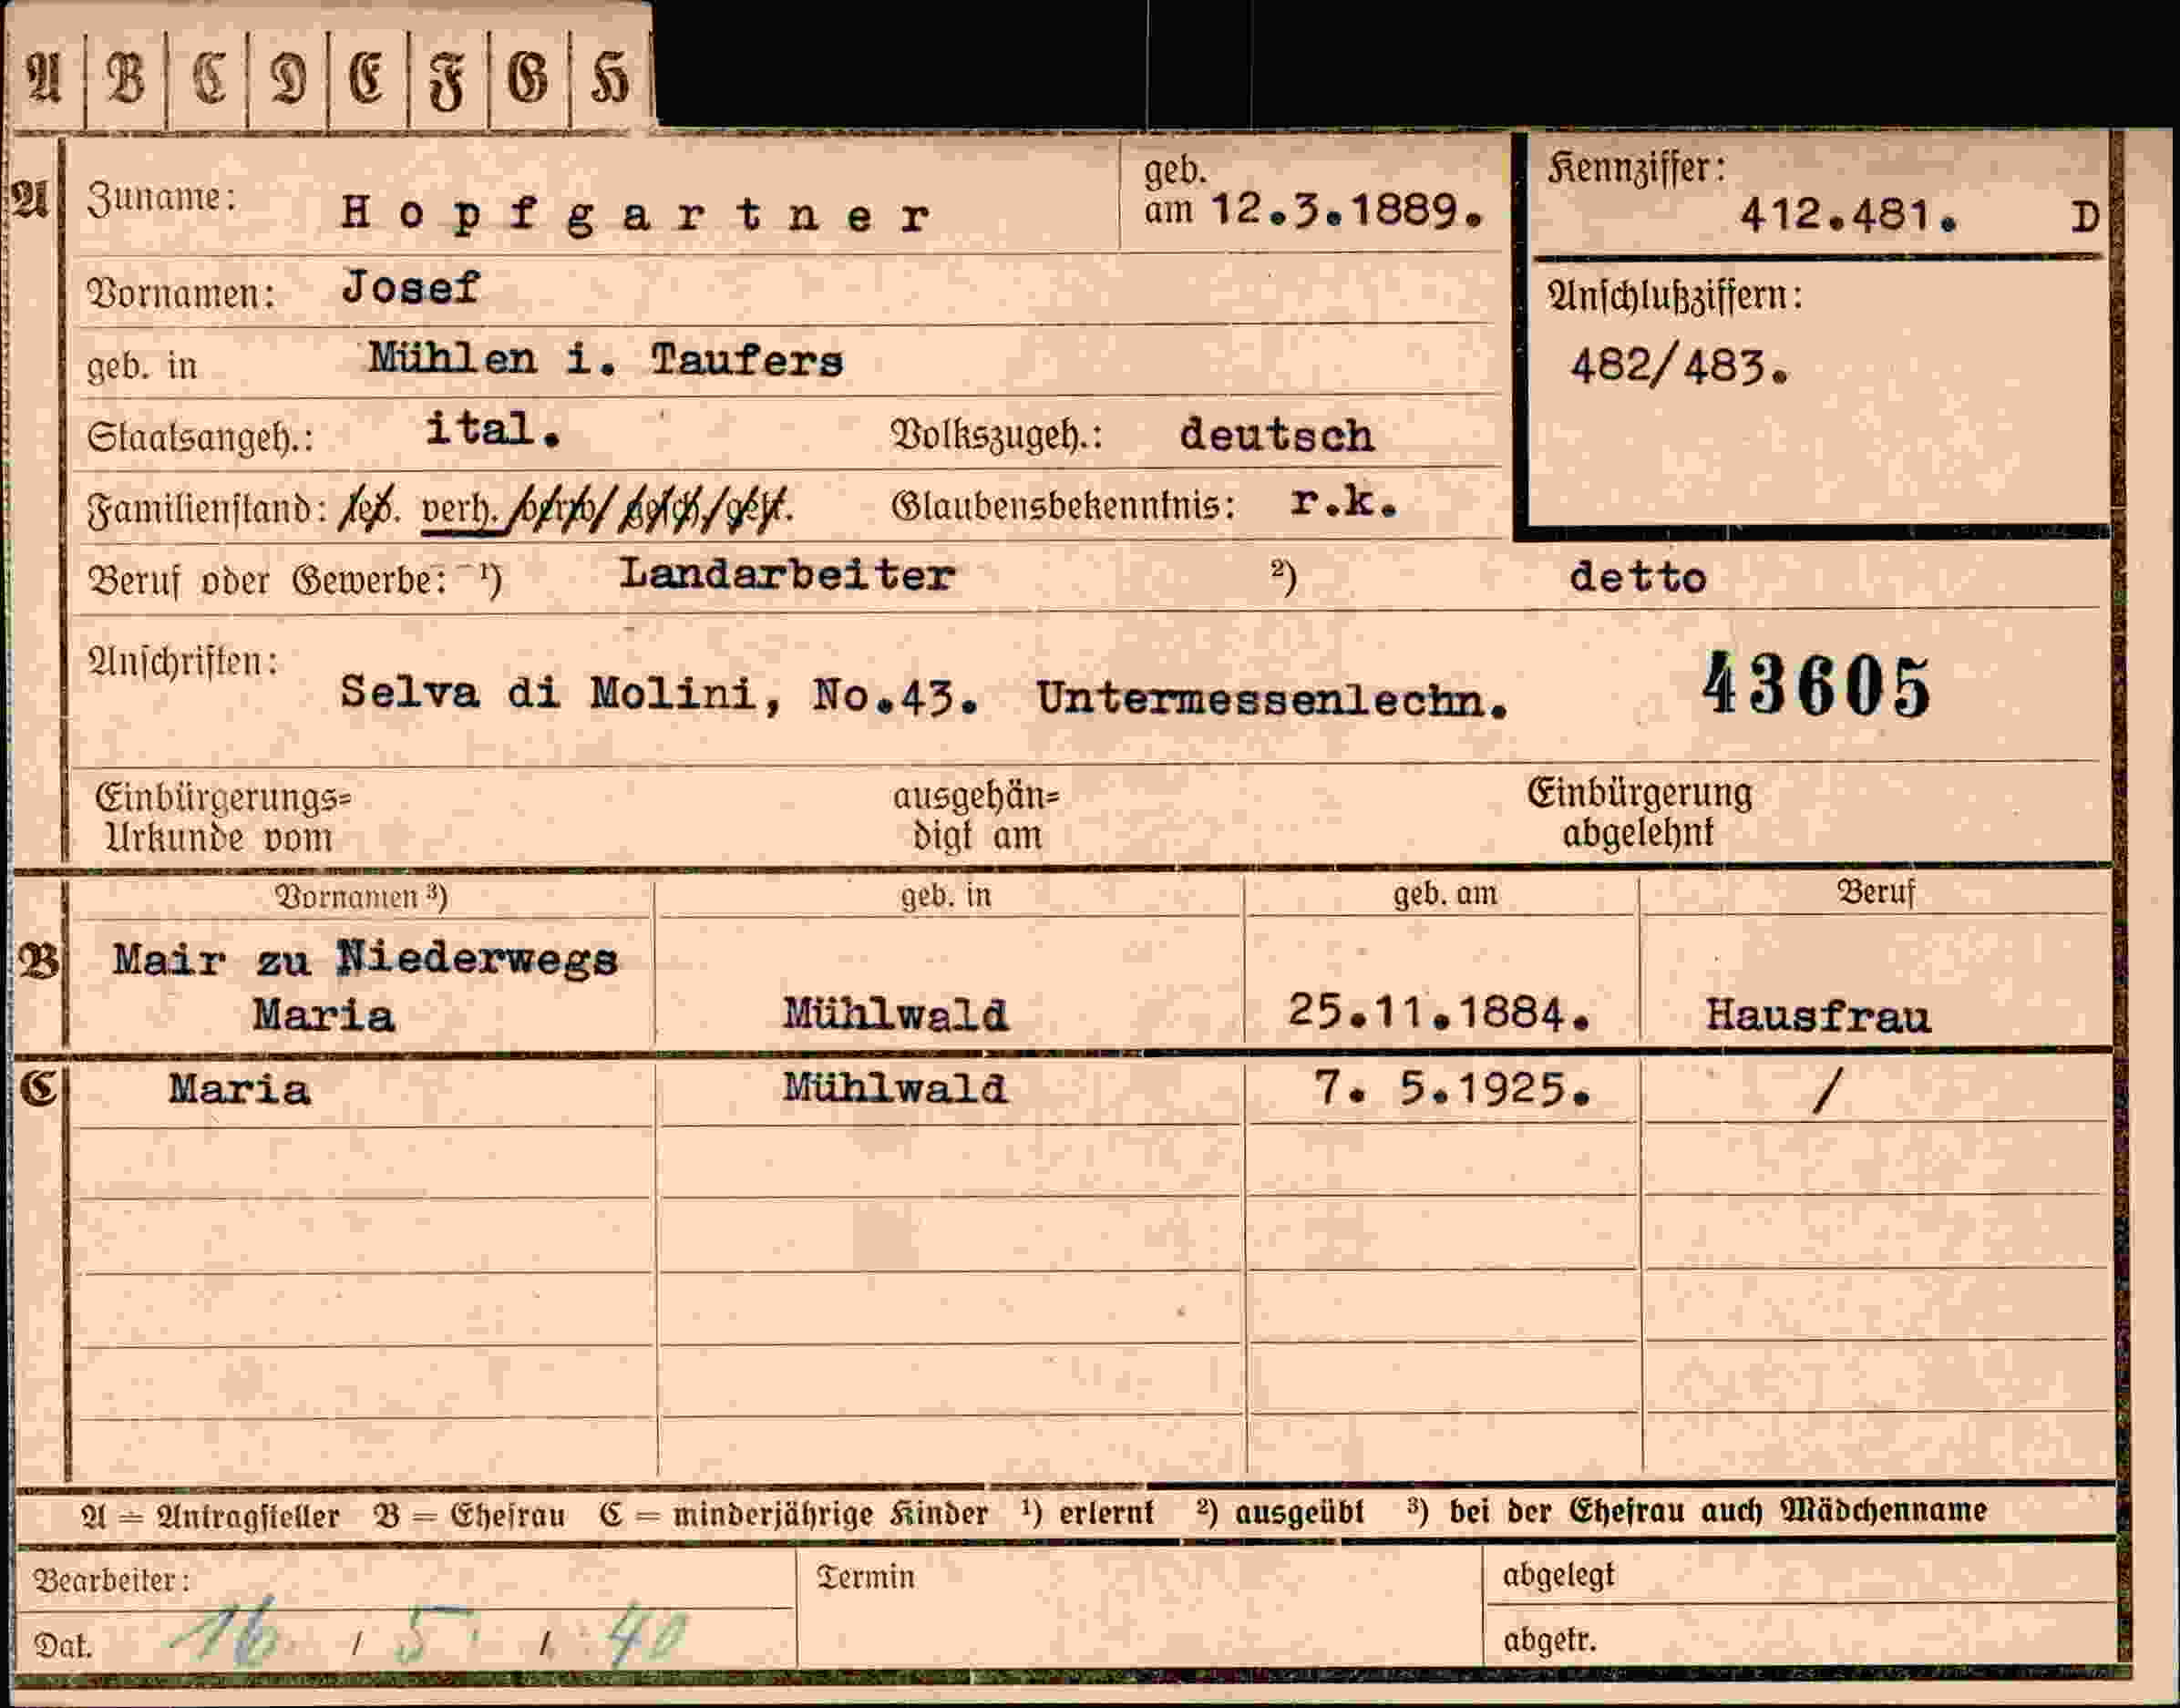 A B C D E F G H
A Zuname: Hopfgartner geb. am 12.3.1889. Kennziffer: 412.481. D
Vornamen: Josef Anschlußziffern:
geb. in Mühlen i. Taufers 482/483.
Staatsangeh.: ital. Volkszugeh.: deutsch
Familienstand: led. verh. verw. gesch. get. Glaubensbekenntnis: r.k.
Beruf oder Gewerbe: ¹) Landarbeiter ²) detto
Anschriften: Selva di Molini, No.43. Untermessenlechn. 43605
Einbürgerungs= ausgehän= Einbürgerung
Urkunde vom digt am abgelehnt
Vornamen ³) geb. in geb. am Beruf
B Mair zu Niederwegs
Maria Mühlwald 25.11.1884. Hausfrau
C Maria Mühlwald 7. 5.1925. /
A = Antragsteller B = Ehefrau C = minderjährige Kinder ¹) erlernt ²) ausgeübt ³) bei der Ehefrau auch Mädchenname
Bearbeiter: Termin abgelegt
Dat. 16 / 5 / 40 abgetr.